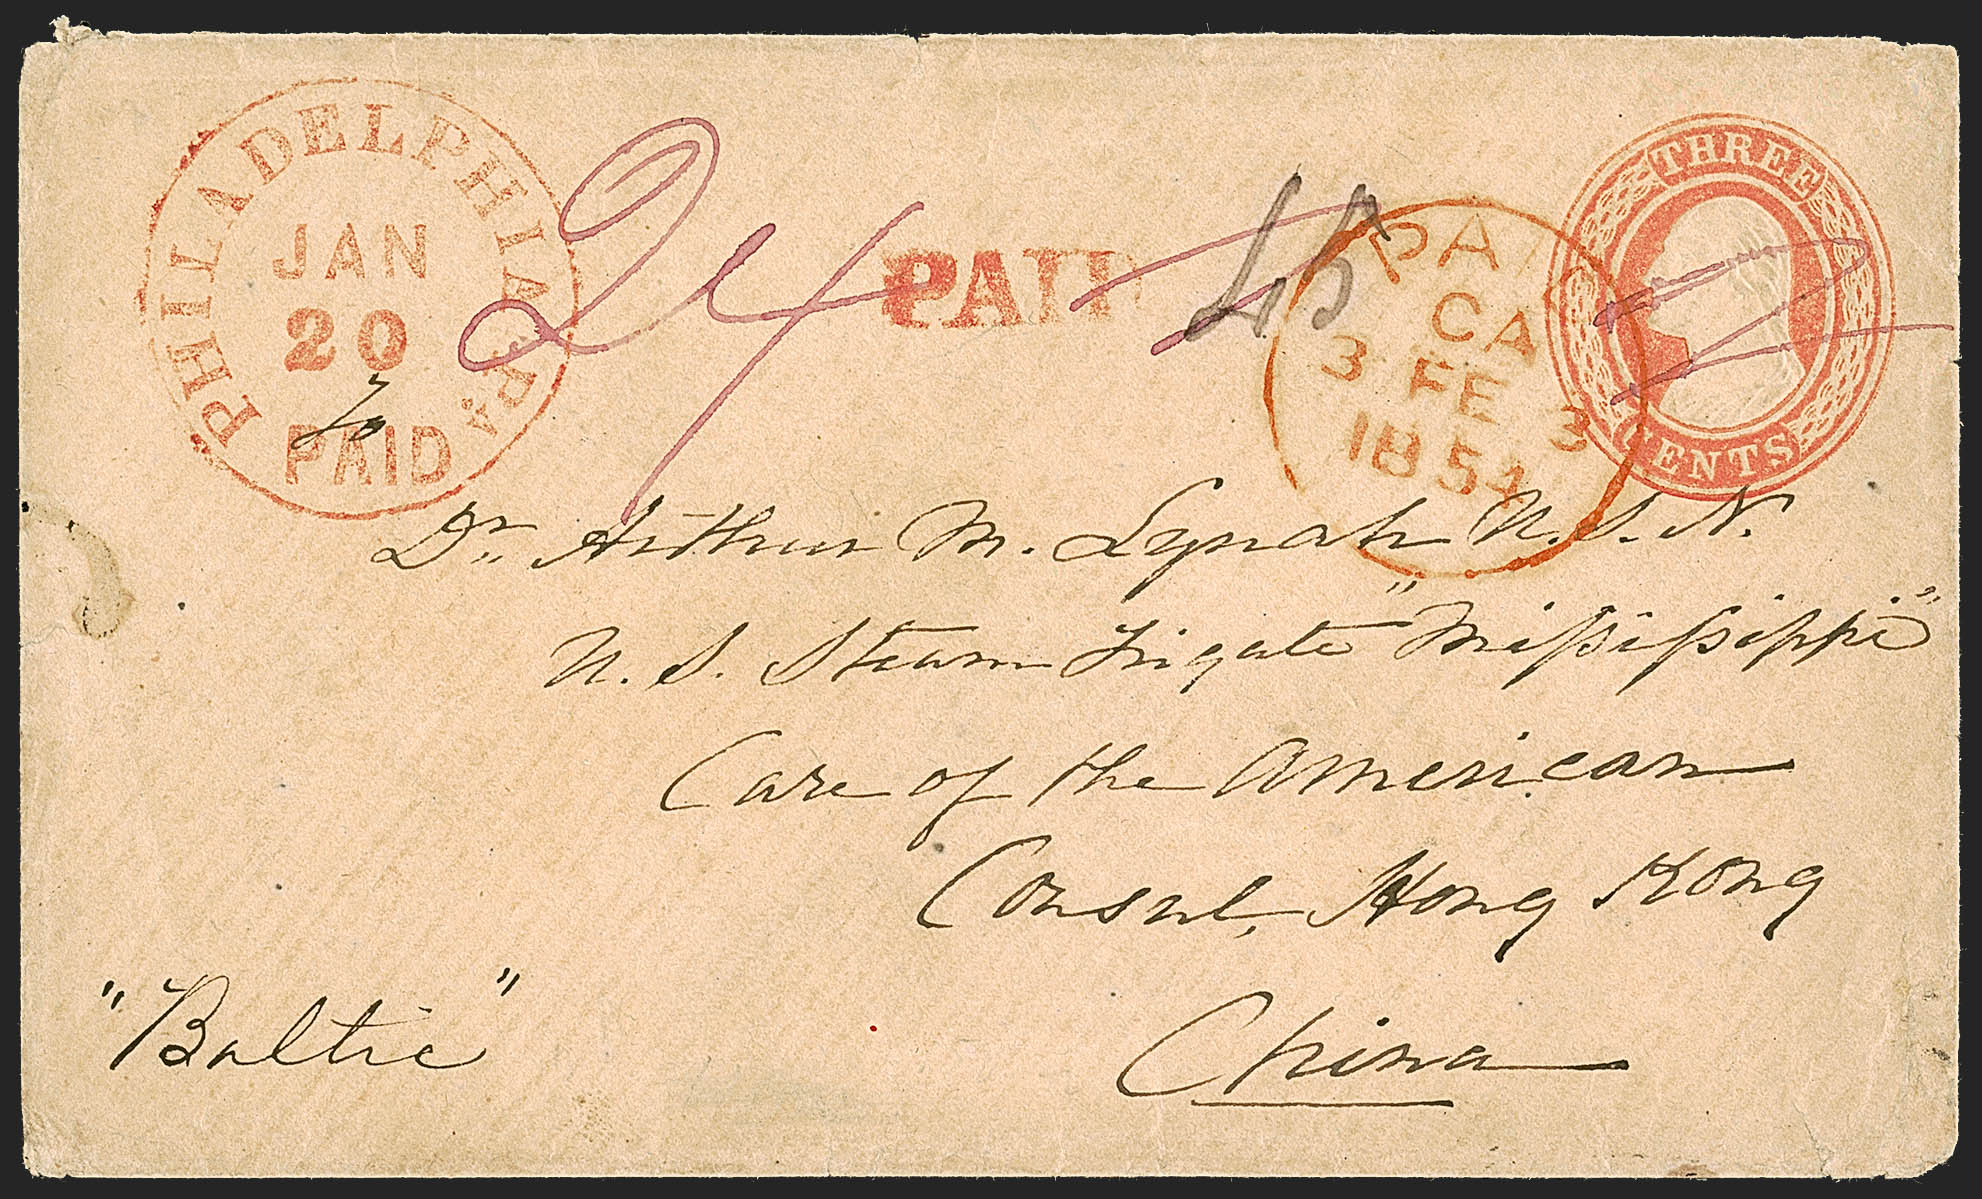 PHILADELPHIA Pa.
JAN
20
PAID
24
PAID
45
PAID
CA
3 FE 3
1854
THREE
CENTS
To
Dr. Arthur M. Lynah U.S.N.
U.S. Steam Frigate "Missisippi"
Care of the American
Consul, Hong Kong
China
"Baltic"